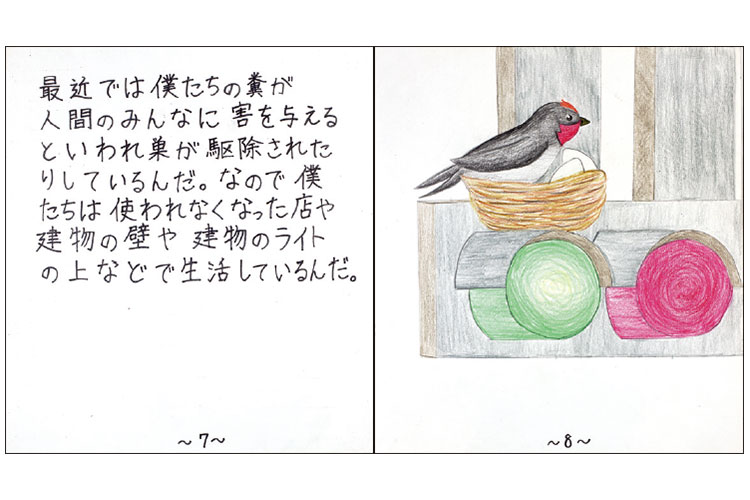 最近では僕たちの糞が
人間のみんなに害を与える
といわれ巣が駆除された
りしているんだ。なので僕
たちは使われなくなった店や
建物の壁や建物のライト
の上などで生活しているんだ。
~7~
~8~